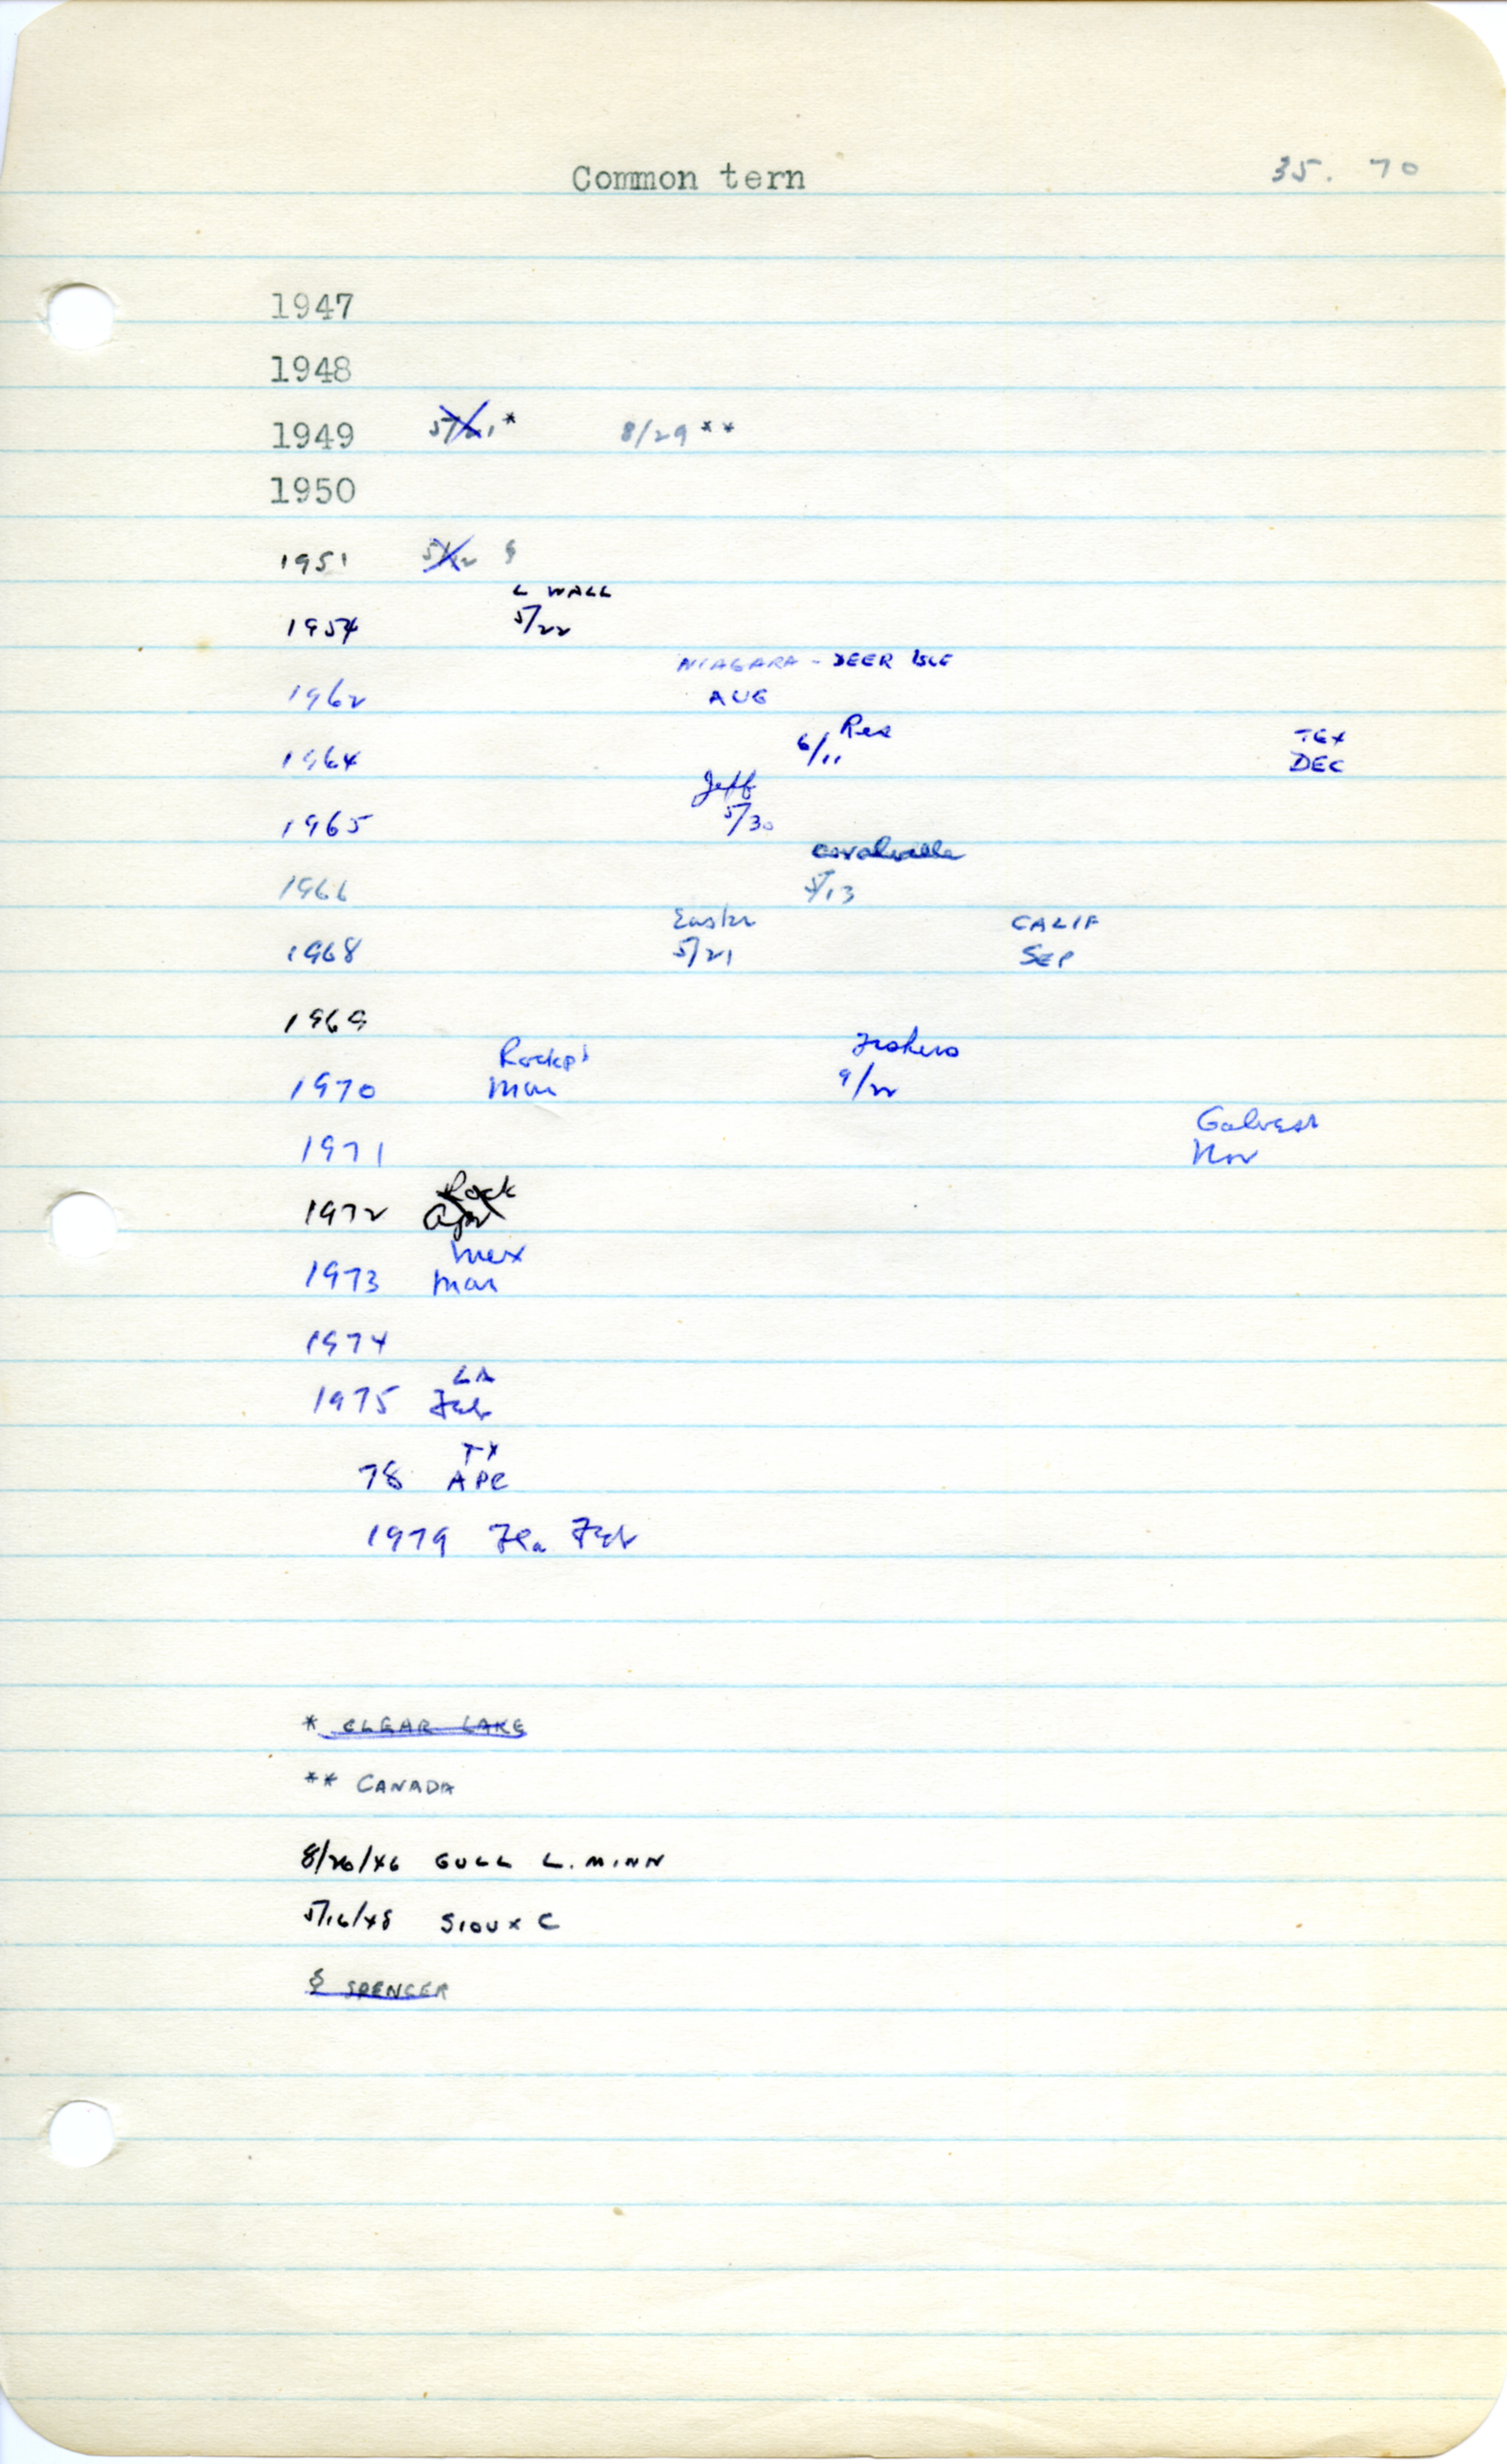 Common tern 35. 70
1947
1948
1949 5/21* 8/29**
1950
1951 5/12 §
L WALL
1954 5/22
NIAGARA - DEER ISLE
1962 AUG
Rea TEX
1964 6/11 DEC
Jeff
1965 5/30
1966 5/13
Easter CALIF
1968 5/21 SEP
1969
Rockpt
1970 Mar 9/22
Galvest
1971 Nov
Rock
1972 Apr
Mex
1973 Mar
1974
LA
1975 Feb
TX
78 APR
1979 Fla Feb
* CLEAR LAKE
** CANADA
8/26/46 GULL L. MINN
5/16/48 SIOUX C
§ SPENCER